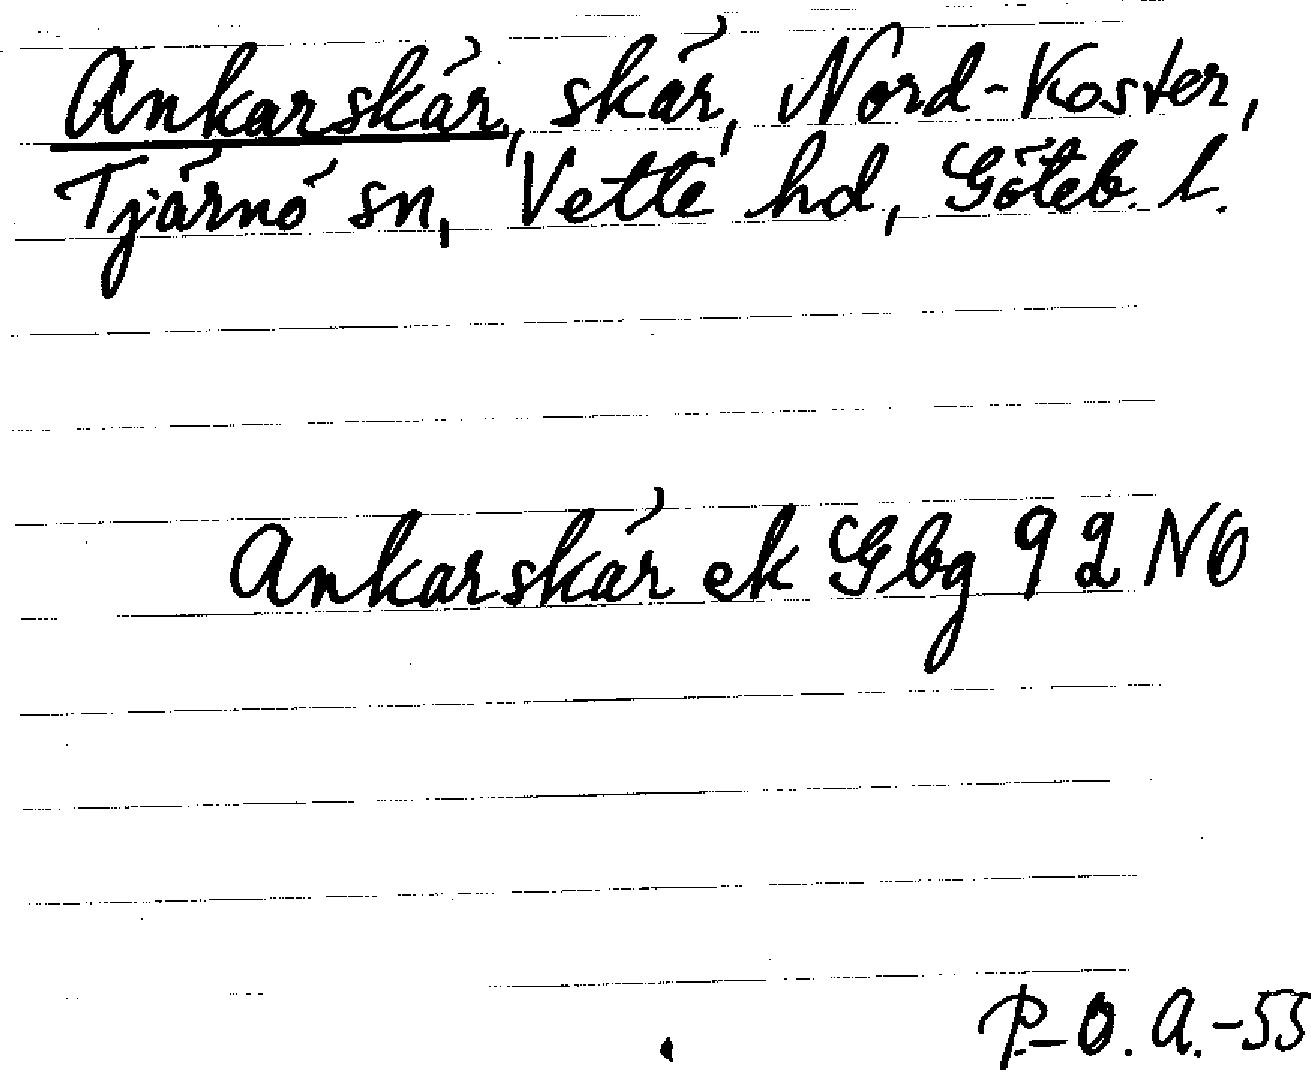 Ankarskär, skär, Nord-Koster,
Tjärnö sn, Vette hd, Göteb. l.
Ankarskär ek Gbg 92 NO
P-O. A.-55